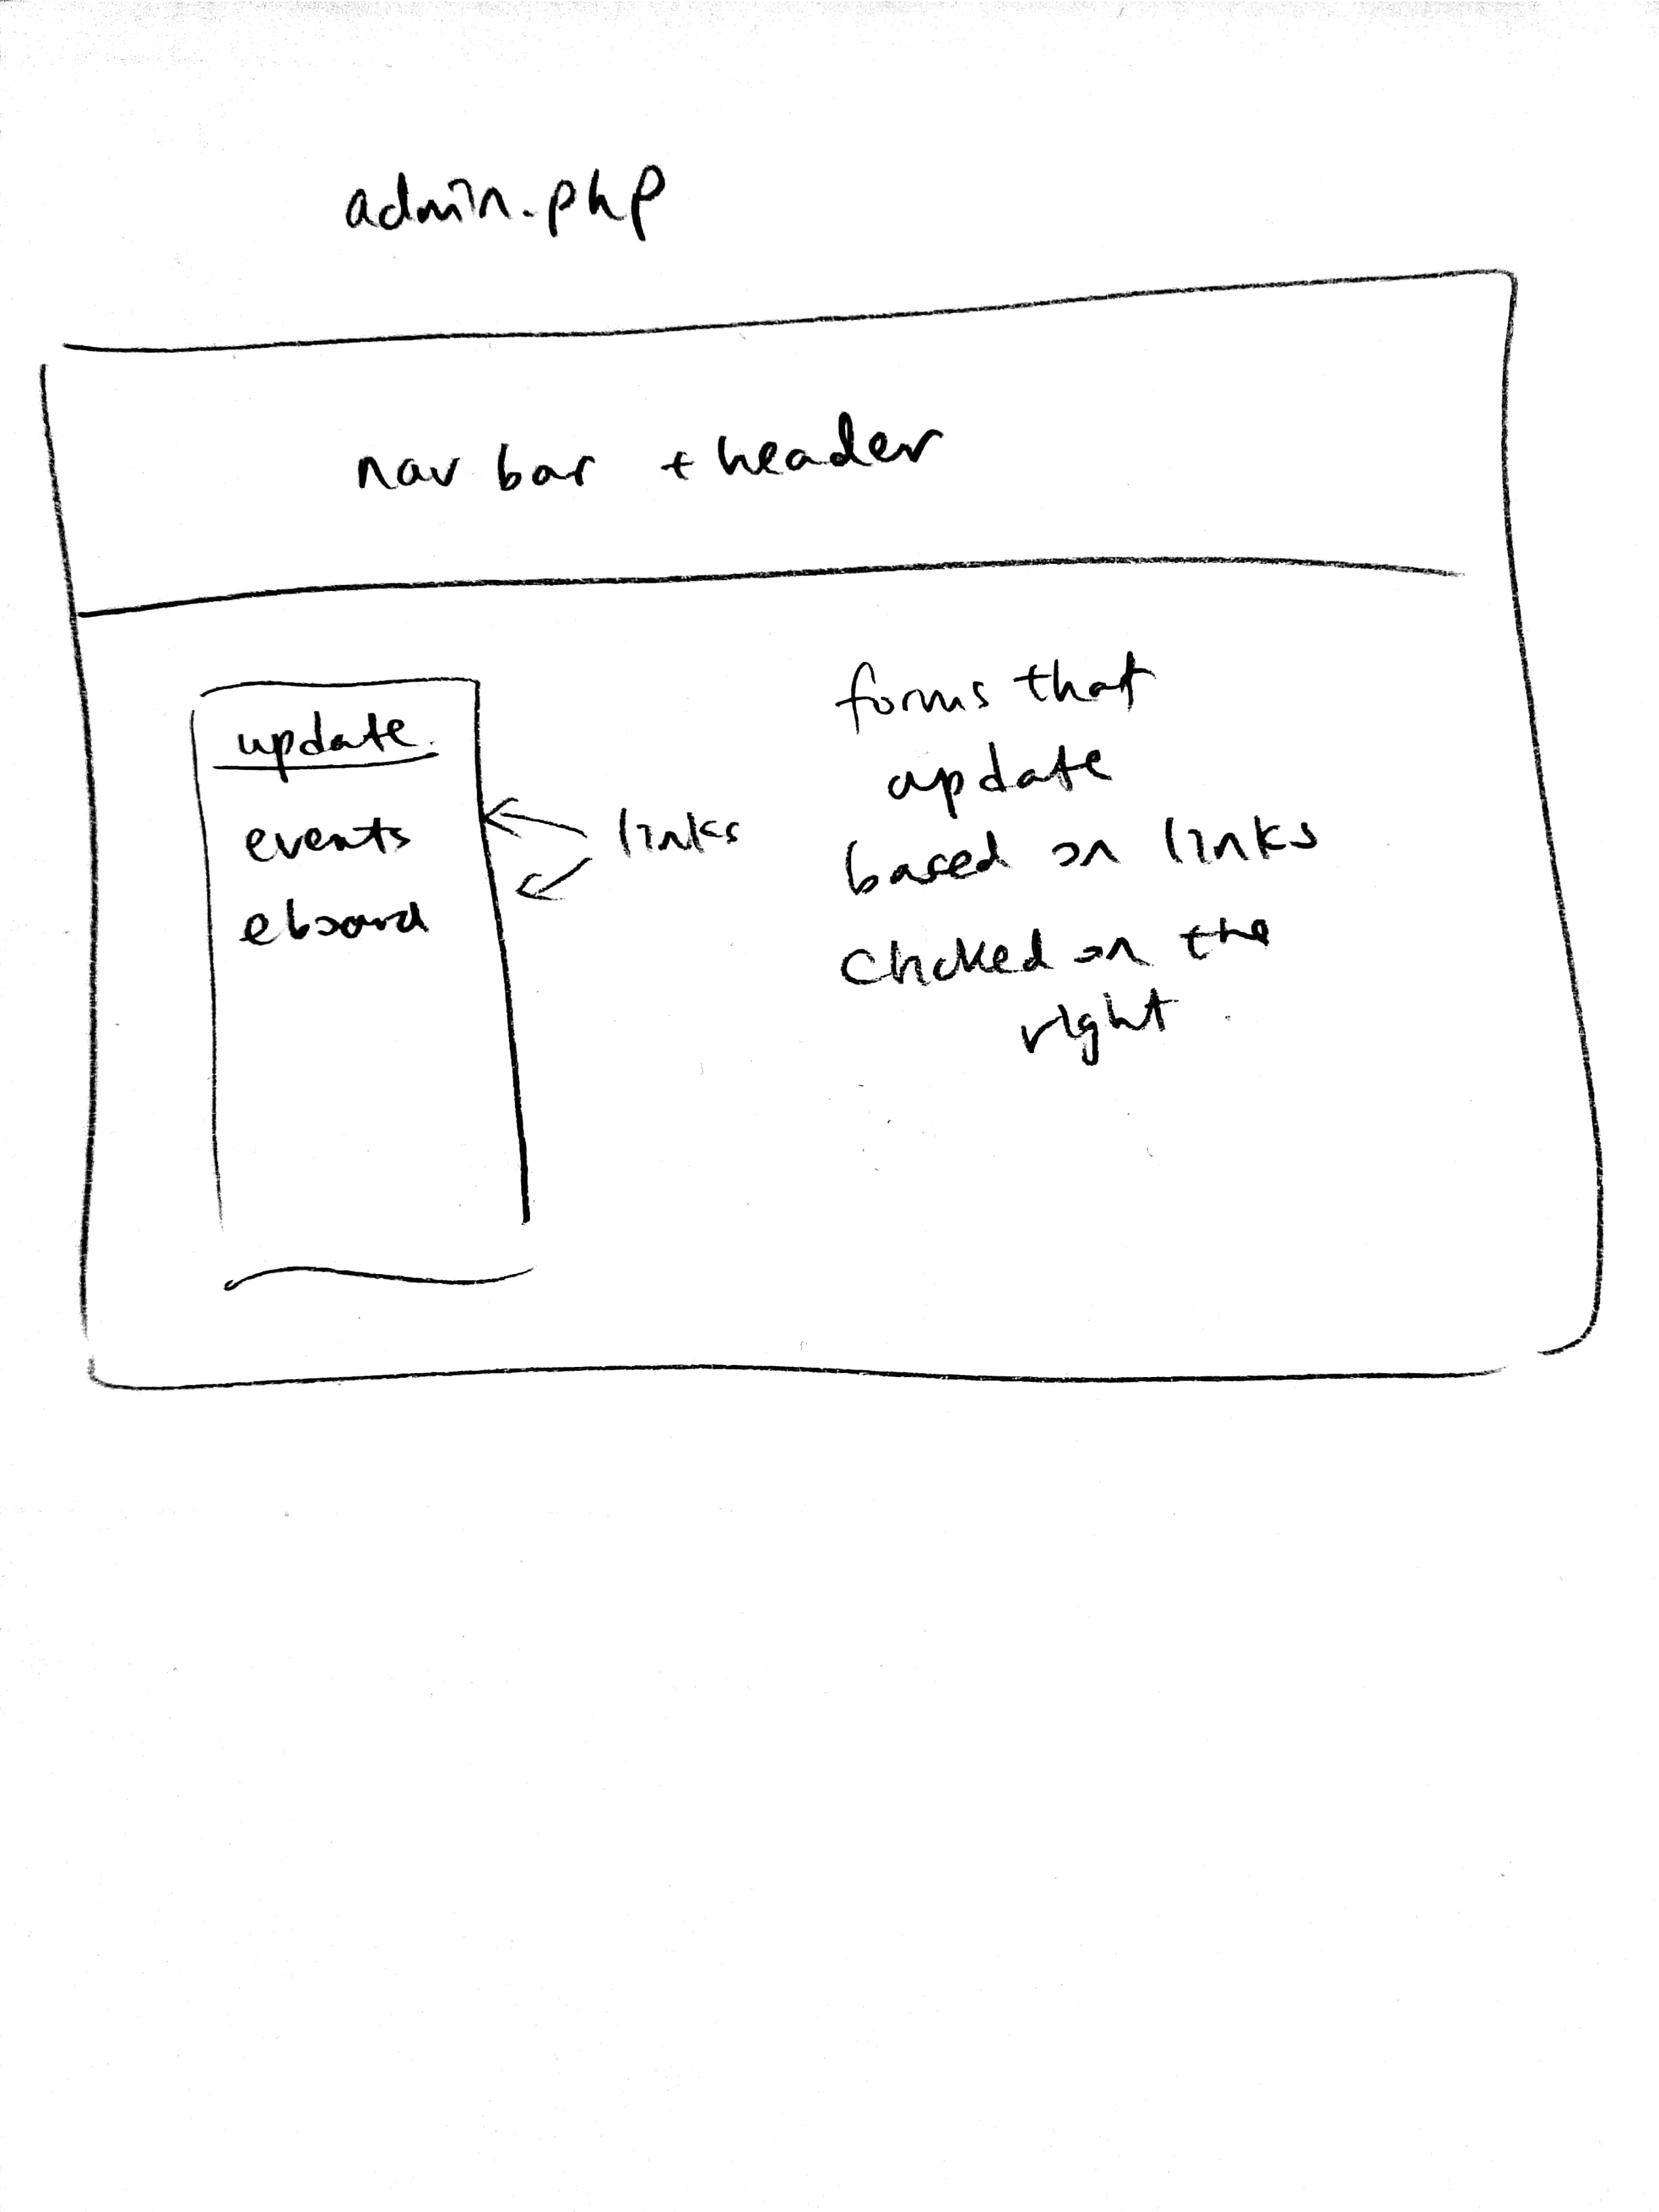 admin.php
nav bar + header
update.
events
eboard
links
forms that
update
based on links
clicked on the
right.